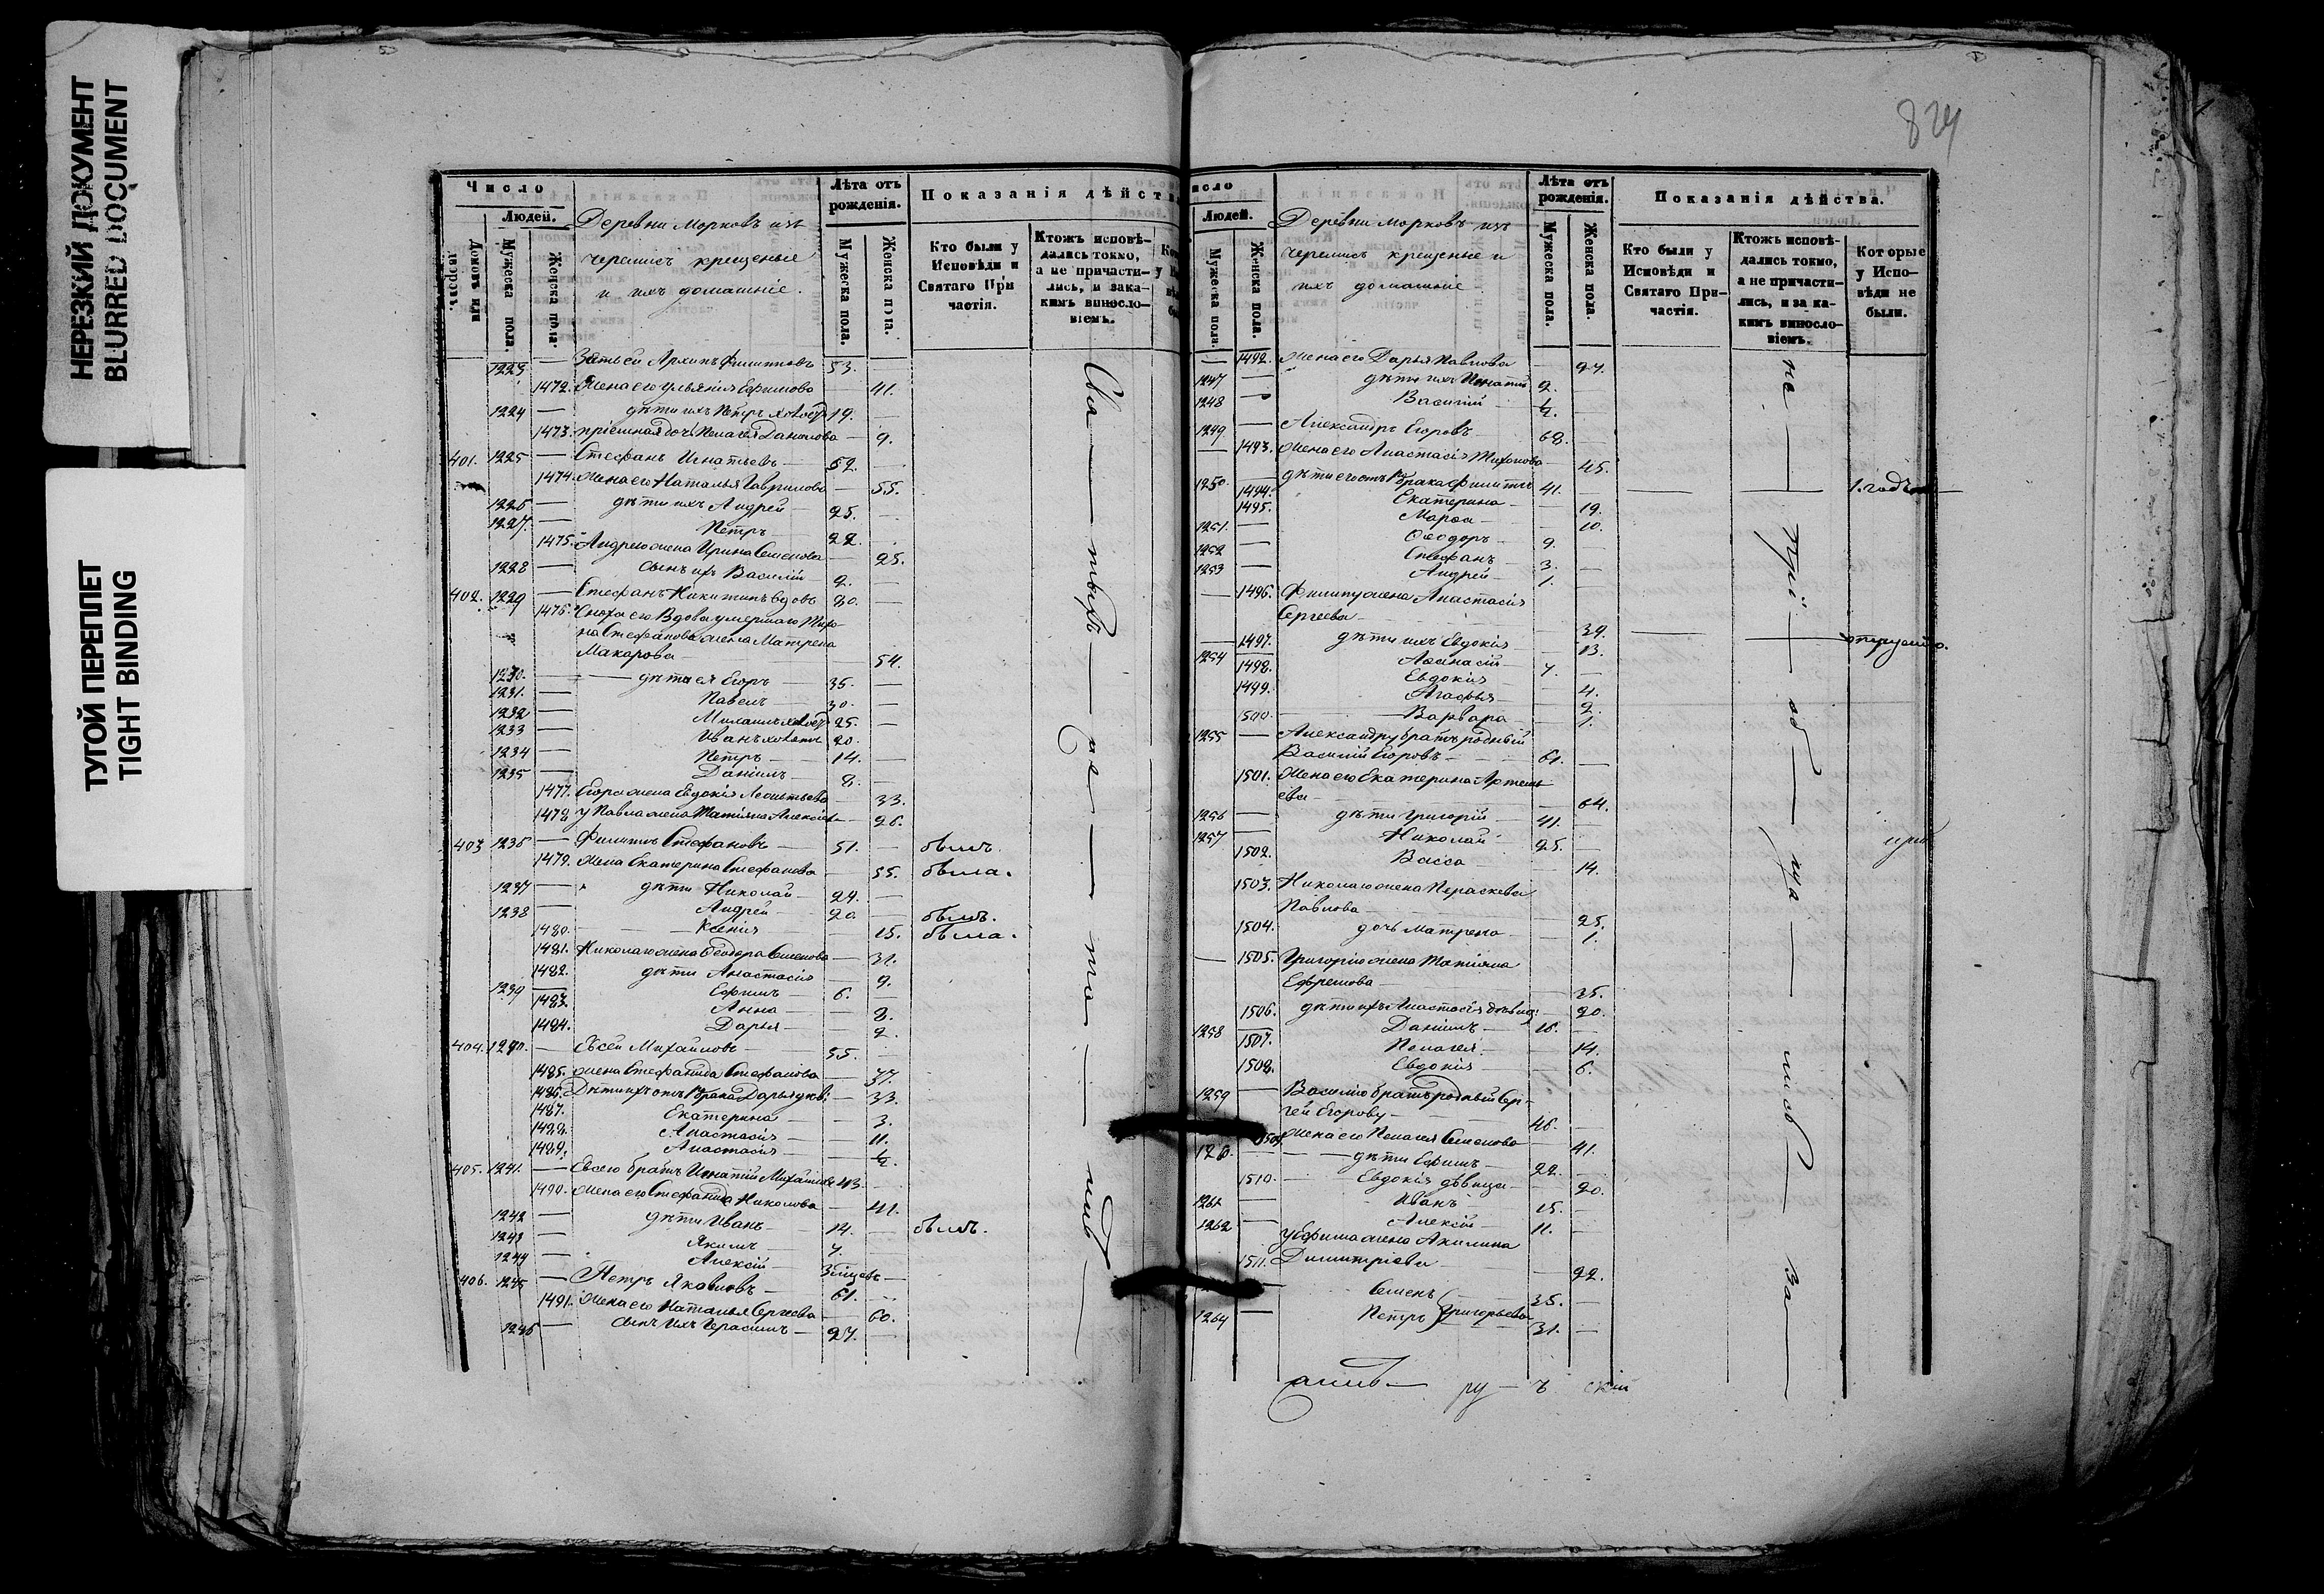 НЕРЕЗКИЙ ДОКУМЕНТ
BLURRED DOCUMENT
ТУГОЙ ПЕРЕПЛЕТ
TIGHT BINDING
Число
Людей.
Домовъ или
Мужеска пола.
Женска пола.
Деревни Морковъ изъ
черемисъ крещеные
и ихъ домашніе.
Лѣта отъ рожденія.
Мужеска пола.
Женска пола.
Показанія дѣйств
Кто были у Исповѣди и Святаго При частія.
Ктожъ исповѣ- дались токмо, а не причасти- лись, и зака- кимъ винословіемъ.
1223 — Зять ея Архипъ Филипповъ 53. —
1472. Жена его Ульянія Ефимова — 41.
1224 — дѣти ихъ Петръ холост 19. —
1473. пріемная дочь Пелагея Данилова — 9.
401. 1225 — Стефанъ Игнатьевъ — 52. —
1474. Жена его Наталья Гаврилова — 55.
1226 — дѣти ихъ Андрей — 25. —
1227. — Петръ — 22. —
1475. Андрею жена Ирина Семенова — 25.
1228 — сынъ ихъ Василій — 2. —
402. 1229 — Стефанъ Никитинъ вдовъ 80. —
1476. Сноха его Вдова умершаго Миро-
на Стефанова жена Матрена
Макарова — 54.
1230. — дѣти ея Егоръ — 35. —
1231. — Павелъ — 30. —
1232 — холост 25. —
1233 — Иванъ холостъ 20.
1234 — Петръ — 14. —
1235 — Даніилъ 8. —
1477. Егора жена Евдокія Леонтьева — 33.
1478 у Павла жена Татіяна Алексѣева — 26.
403 1236 — Филиппъ Стефановъ — 51. — былъ.
1479. Жена Екатерина Стефанова — 55. была.
1237 — дѣти Николай — 24. —
1238 — Андрей — 20 — былъ.
1480. — Ксенія — 15. была.
1481. Николаю жена Ѳеодора Семенова — 31.
1482. дѣти Анастасія — 9.
1239 — Ефимъ — 6. —
1483. Анна — 8.
1484. Дарья — 2.
404. 1240. — Евсей Михайловъ — 55. —
1485. жена Стефанида Стефанова — 37.
1486. Дѣти ихъ отъ 1 брака Дарья — 33.
1487. Екатерина — 3.
1488. Анастасія — 11.
1489. Анастасія — ½.
405. 1241. — Евсею братъ Игнатій Михайловъ 43. —
1490. Жена его Стефанида Николаева — 41.
1242 — дѣти Иванъ — 14. — былъ.
1243 — Якимъ — 7. —
1244 — Алексій — 3 мѣсяцевъ —
406. 1245 — Петръ Яковлевъ — 61. —
1491. Жена его Наталья Сергеева — 60.
1246 — сынъ ихъ Герасимъ — 27. —
824
исло
Людей.
Мужеска пола.
Женска пола.
Деревни Морковъ изъ
черемисъ крещеные и
ихъ домашніе
Лѣта отъ рожденія.
Мужеска пола.
Женска пола.
Показанія дѣйства.
Кто были у Исповѣди и Святаго При- частія.
Ктожъ исповѣ- дались токмо, а не причасти- лись, и за ка- кимъ винословіемъ.
Которые у Испо- вѣди не были.
— 1492. Жена его Дарья Павлова — 24.
1247 — дѣти ихъ Игнатій 2. —
1248 — Василій — ½. —
1249 — Александръ Егоровъ — 68. —
— 1493. Жена его Анастасія — 45.
1250 — дѣти его отъ 1 брака Филиппъ 41. — 1. годъ
1494. Екатерина — 19.
1495. Марѳа — 10.
1251. — Ѳеодоръ — 9. —
1252 — Стефанъ — 3. —
1253 — Андрей — 1. —
— 1496. Филиппу жена Анастасія
Сергеева — 39.
1497. дѣти ихъ Евдокія — 13.
1254 — Аѳанасій — 7. —
1498. Евдокія — 4.
1499. Агафья — 2.
1500. — Варвара — 1.
1255 — Александру братъ родный
Василій Егоровъ — 61. —
1501. Жена его Екатерина Артемь
ева — 64.
1256 — дѣти Григорій — 41. —
1257 — Николай 25. —
1502. Васса — 14.
1503. Николаю жена Параскева
Павлова — 25.
1504. дочь Матрена — 1.
— 1505. Григорію жена Татіяна
Ефремова — 35.
1506. дѣти ихъ Анастасія дѣвица — 20.
1258 — Даніилъ — 16. —
1507. Пелагея — 14.
1508. Евдокія — 6.
1259 — Василію братъ родный Сер-
гей Егоровъ — 46. —
1509. Жена его Пелагея Семенова — 41.
1260. — дѣти Ефимъ — 22. —
1510. — Евдокія дѣвица — 20.
1261 — Иванъ — 15. —
1262 — Алексій — 11. —
у Ефима жена Акилина
1511. Димитріева — 22.
Семенъ 35. —
1264 — Петръ Григорьевы 31. —